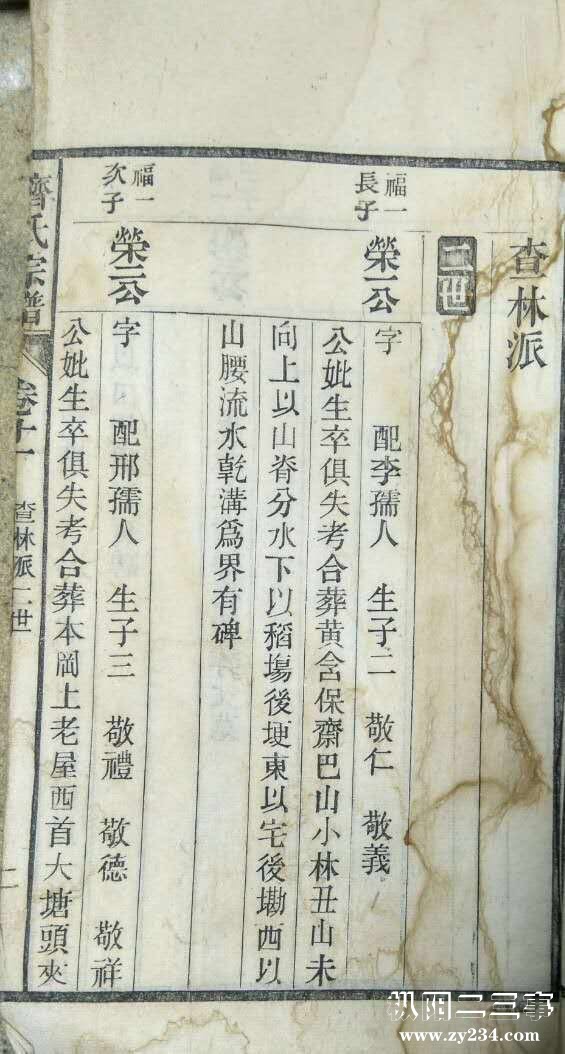 查林派
二世
福一
長子
榮一公
字 配李孺人 生子二 敬仁 敬義
公妣生卒俱失考合葬黃含保齋巴山小林丑山未
向上以山脊分水下以稻塲後埂東以宅後墈西以
山腰流水乾溝爲界有碑
福一
次子
榮二公
字 配邢孺人 生子三 敬禮 敬德 敬祥
公妣生卒俱失考合葬本岡上老屋西首大塘頭夾
齊氏宗譜 卷十一 查林派二世 二
枞阳二三事
www.zy234.com